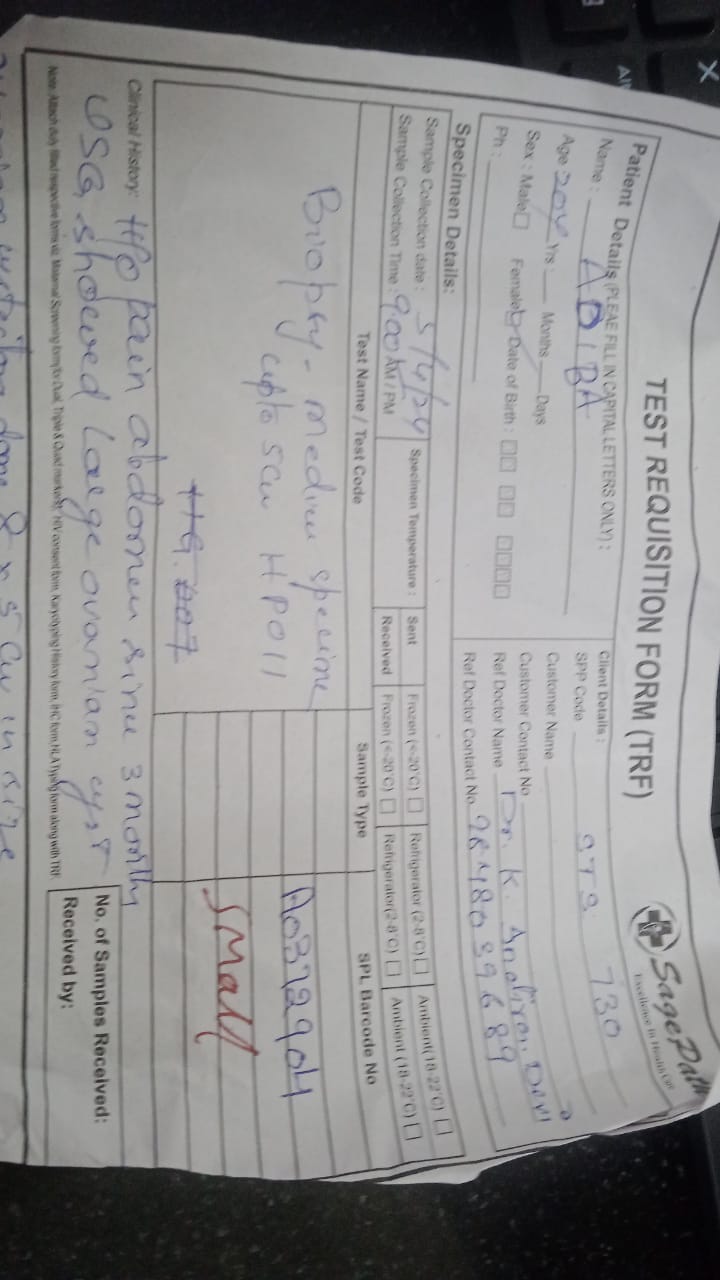 TEST REQUISITION FORM (TRF)
SagePath
Excellence In Health Care
Patient Details (PLEAE FILL IN CAPITAL LETTERS ONLY) :
Name : ADIBA
Age 20y Yrs : Months Days
Sex : Male Female Date of Birth :
Ph :
Client Details :
SPP Code 730
Customer Name
Customer Contact No
Ref Doctor Name Dr. K. Devi
Ref Doctor Contact No.
Specimen Details:
Sample Collection date : 5/4/24
Sample Collection Time : 9:00 AM / PM
Specimen Temperature :
Sent Frozen (<-20°C) Refrigerator (2-8°C) Ambient (18-22°C)
Received Frozen (<-20°C) Refrigerator (2-8°C) Ambient (18-22°C)
Test Name / Test Code Sample Type SPL Barcode No
Biopsy - medium specimen A0372904
upto 5cm HP011
Small
Clinical History: H/o pain abdomen since 3 months
USG showed Large ovarian cyst
Note: Attach duly filled respective forms viz. Maternal Screening form for Dual, Triple & Quad markers, HIV consent form, Karyotyping History form, IHC form, HLA Typing form along with TRF.
No. of Samples Received:
Received by:
done 8 x 5 cm in size